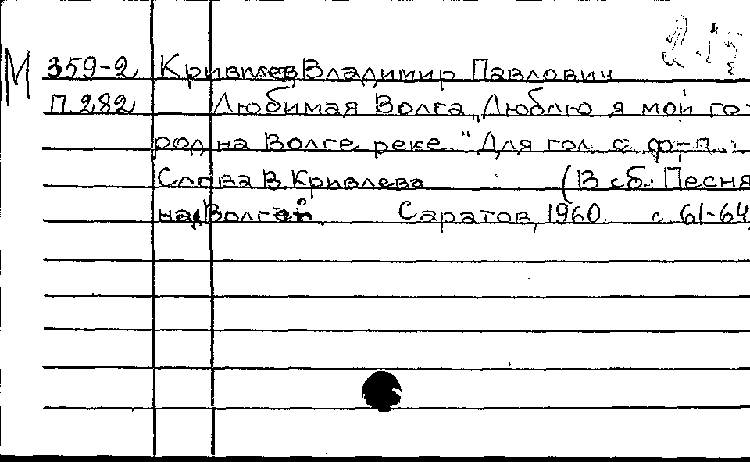 М 359-2 Кривлев Владимир Павлович
П 282 Любимая Волга „Люблю я мой го-
род на Волге реке." Для гол. с ф-п.
Слова В. Кривлева (В сб: Песня
над Волгой Саратов, 1960. с 61-64